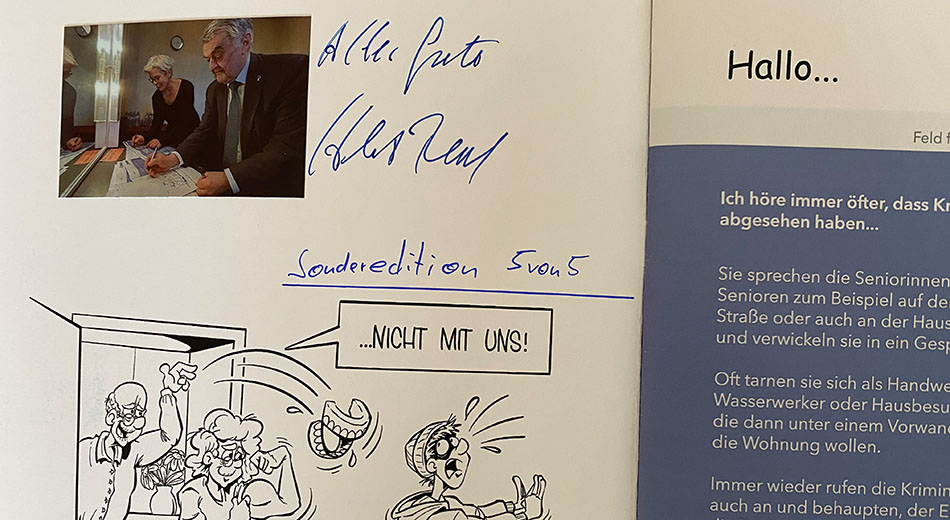 Alles Gute
Sonderedition 5 von 5
...NICHT MIT UNS!
Hallo...
Feld f
Ich höre immer öfter, dass Kr
abgesehen haben...
Sie sprechen die Seniorinnen
Senioren zum Beispiel auf de
Straße oder auch an der Haus
und verwickeln sie in ein Gesp
Oft tarnen sie sich als Handwe
Wasserwerker oder Hausbesu
die dann unter einem Vorwan
die Wohnung wollen.
Immer wieder rufen die Krimin
auch an und behaupten, der E